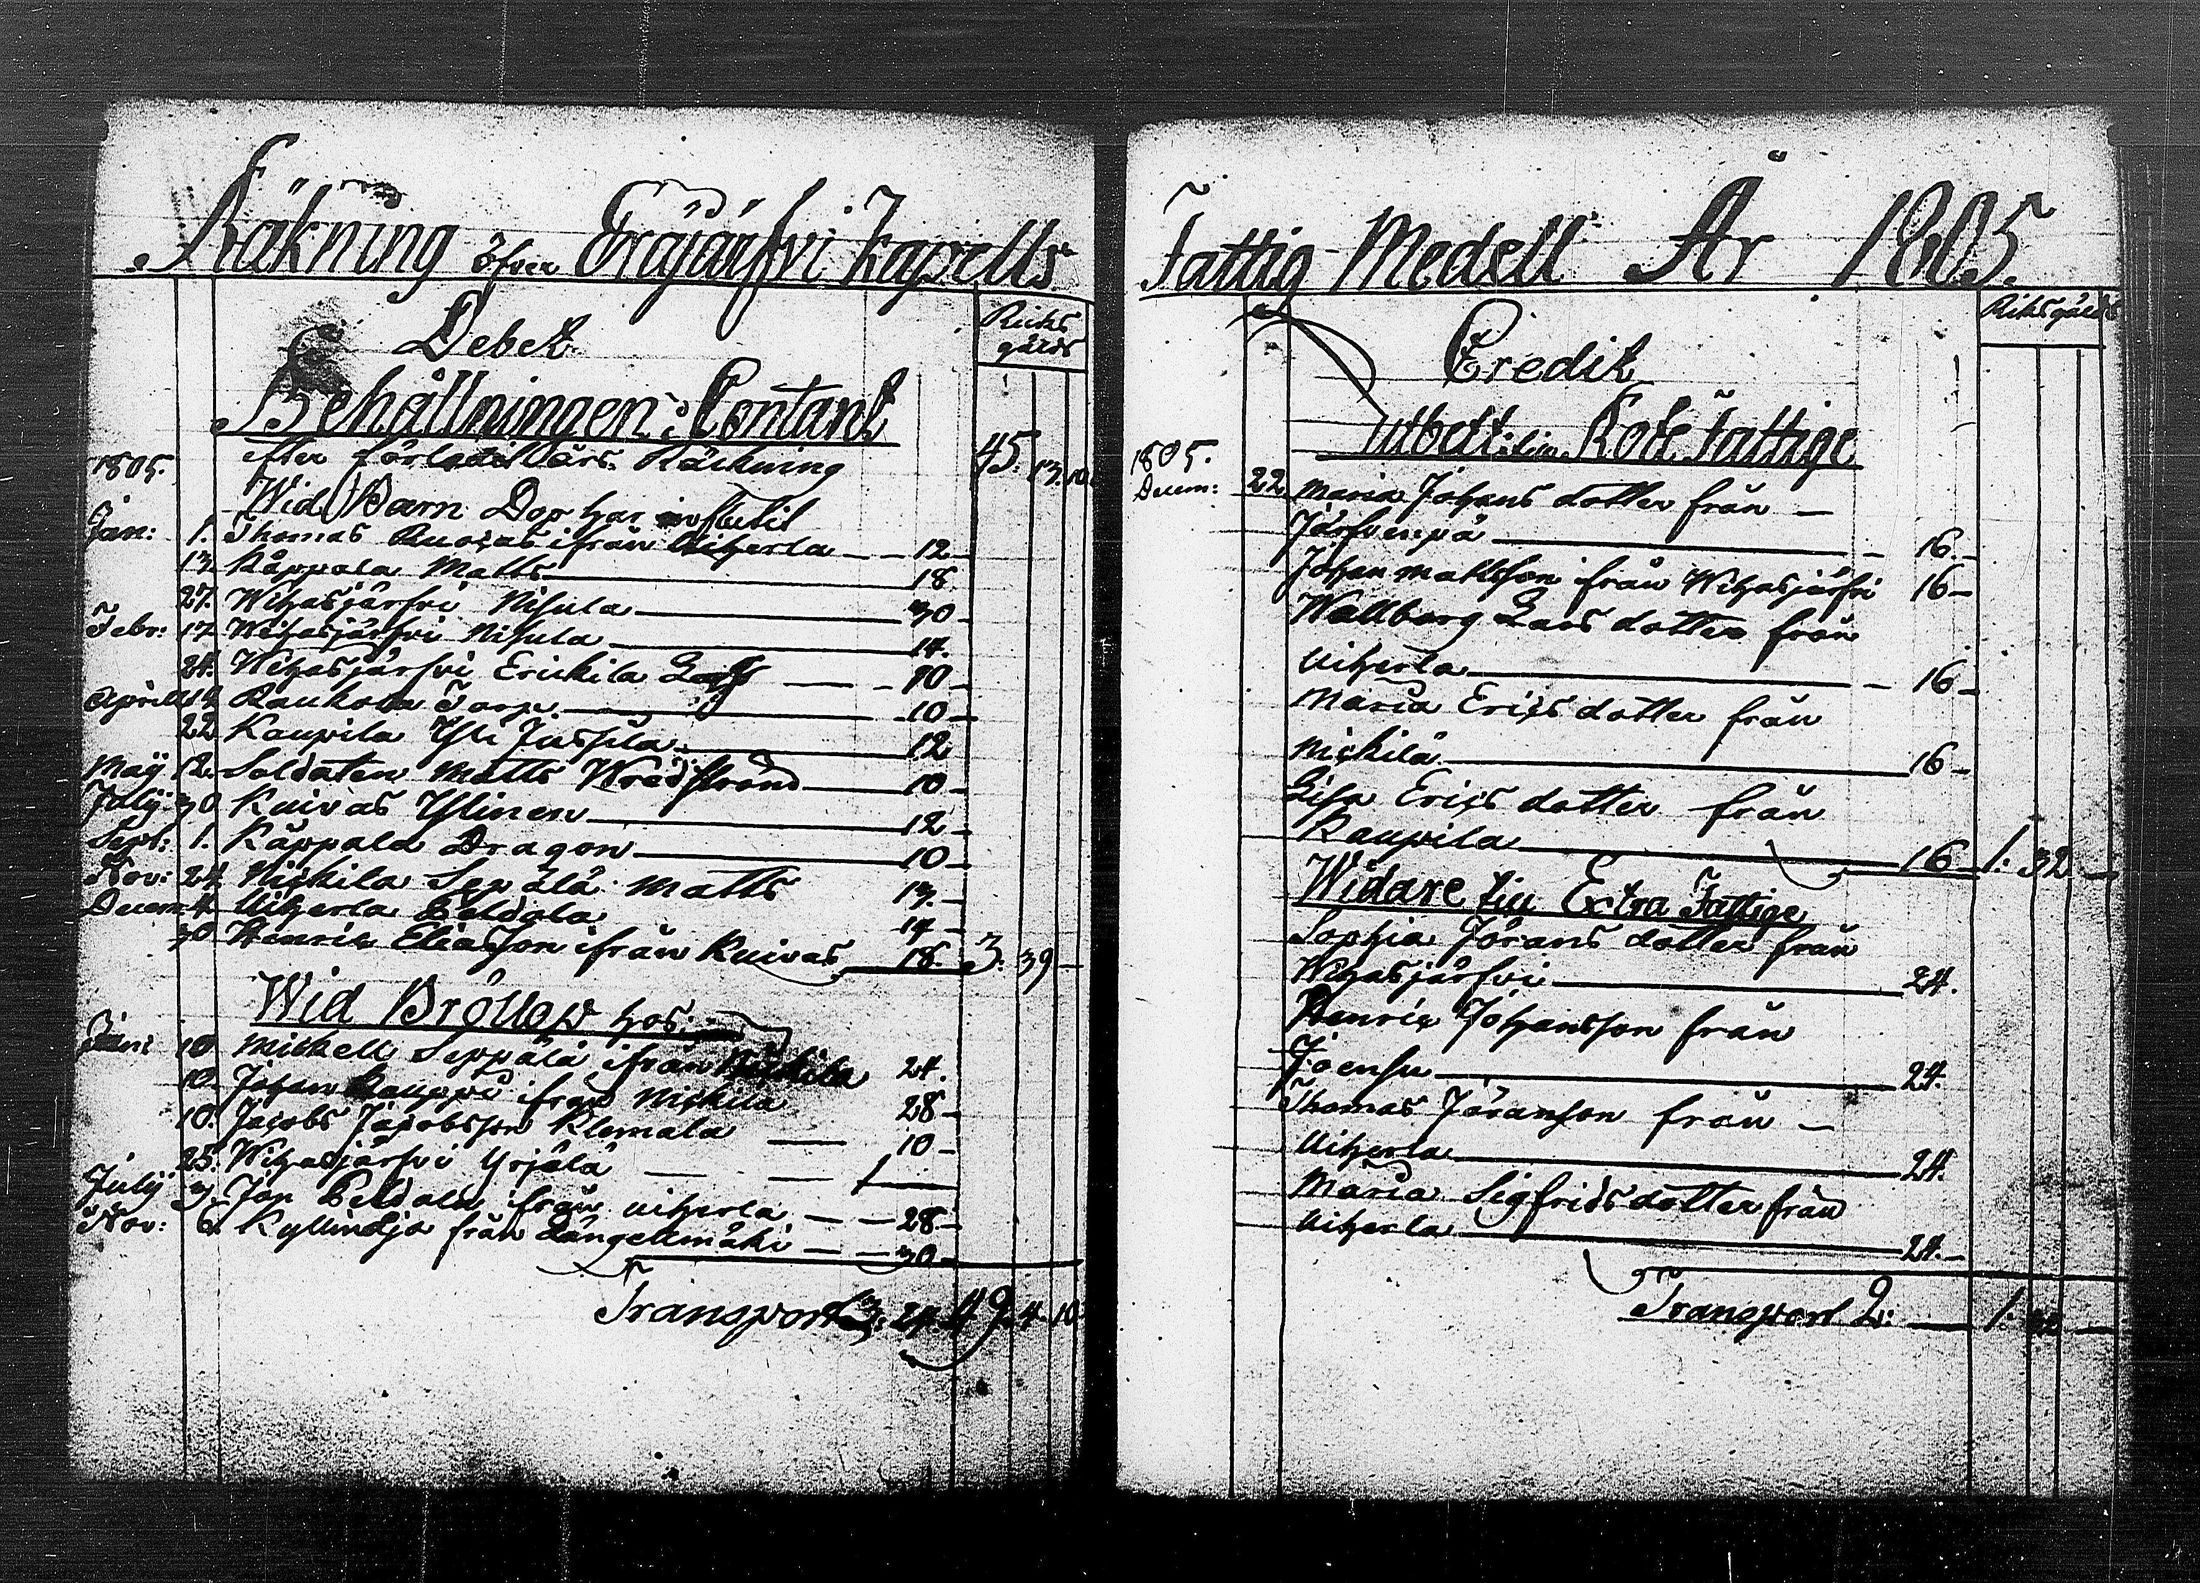 Räkning öfver Eräjärfvi Kapells
Debet
Riks
gälds
Behållningen: Contant
efter Räckning 45: 13. 10.
1805.
Wid Barn Dop har influtit
Jan: 1. Thomas ifrån Uiherla — 12 —
13. Käppala Matts — 18
27. Wihasjärfvi Nisula — 30 —
Febr: 17. Wihasjärfvi Nisula — 14.
24. Wihasjärfvi Erickila — 10 —
Aprill 14. Rauhala Torp. — 10 —
22 Kaupila Yli Jussila — 12
Maÿ 12. Soldaten Matts Wredstrand — 10 —
Julÿ 30 Kuivas Ylinen — 12 —
Sept: 1. Käppala Dragon — 10 —
Nov: 24. Nickila Sepälä Matts 13. —
Decem 4. Uiherla Peldola 14 —
30 Henric Eliasson ifrån Kuivas 18. 3: 39 —
Wid Bröllop hos:
Jan: 10 Mickell Seppälä ifrån Nickila 24.
10. Johan Kauppi ifrån Nickila 28 —
10. Jacobs Jacobsson Klemala — 10 —
25. Wihasjärfvi Yrjälä — — 1 —
Julÿ 3. Peldola ifrån Uiherla — — 28 —
Nov: 6. Kyllindja från Längelmäki — — 30 —
Transport 3: 24. 49. 4. 10.
Fattig Medell År 1805.
Riksgälds
Credit
utbett: till Rote Fattige
1805.
Decem: 22 Maria Johans dotter från —
Järfvenpä — 16. —
Johan Mattsson från Wihasjärfvi 16 —
Wallborg Lars dotter från
Uiherla — 16 —
Maria Erics dotter från
Nickilä — 16 —
Lisa Erics dotter från
Kaupila — 16 1: 32 —
Widare till Extra Fattige
Sophia Jörans dotter från
Wihasjärfvi — 24.
Henric Johansson från
Joensu — 24.
Thomas Jöransson från —
Uiherla — 24.
Maria Sigfrids dotter från
Uiherla — 24. —
Transport 2: — 1: 32 —